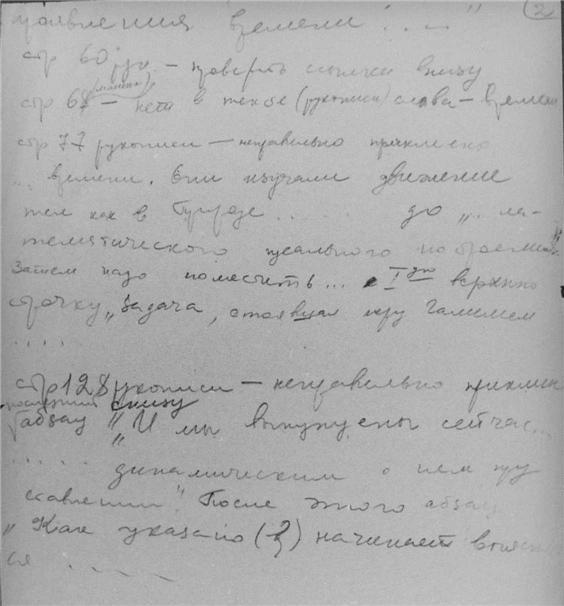 проявления времени . . . . " (2)
стр 60 рук. — проверить ссылки внизу
стр 67 — нет в тексте (рукописи) слова — времен
стр 77 рукописи — неправильно приклеено
... времени. Они изучали движение
тел как в природе . . . . . . до „ .. ма-
тематического идеального
Затем надо поместить ... I ую верхнюю
строчку „Задача, стоявшая перед Галилеем
. . . .
стр 128 рукописи — неправильно приклеен
последний снизу
абзац „И мы вынуждены сейчас...
. . . . . динамическим о нем пред
ставлении". После этого абзац
„Как указано (?) начинает
ся . . . . .